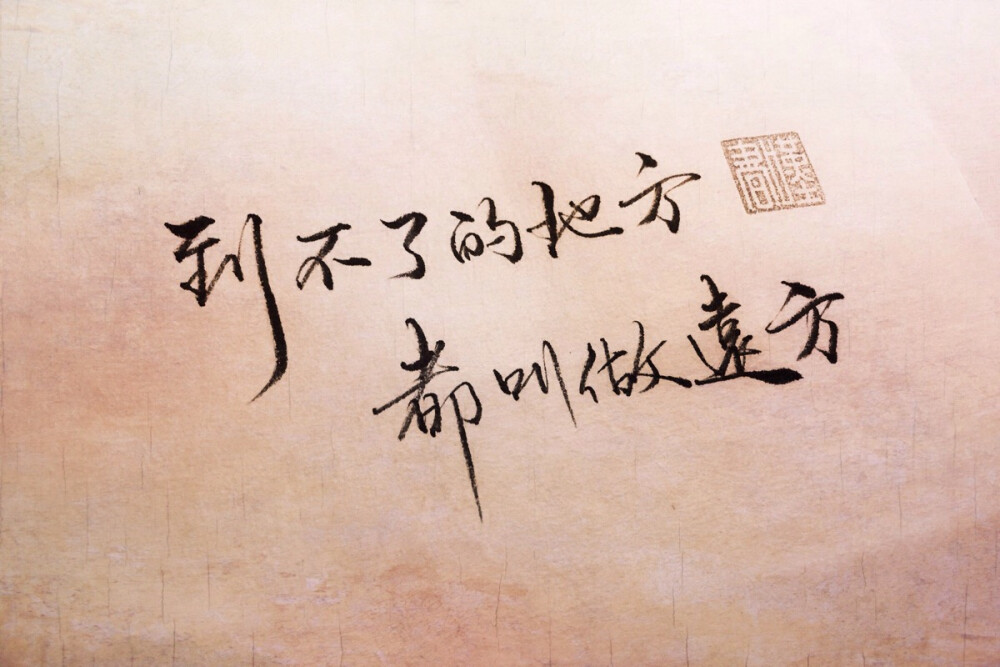 到不了的地方
都叫做遠方